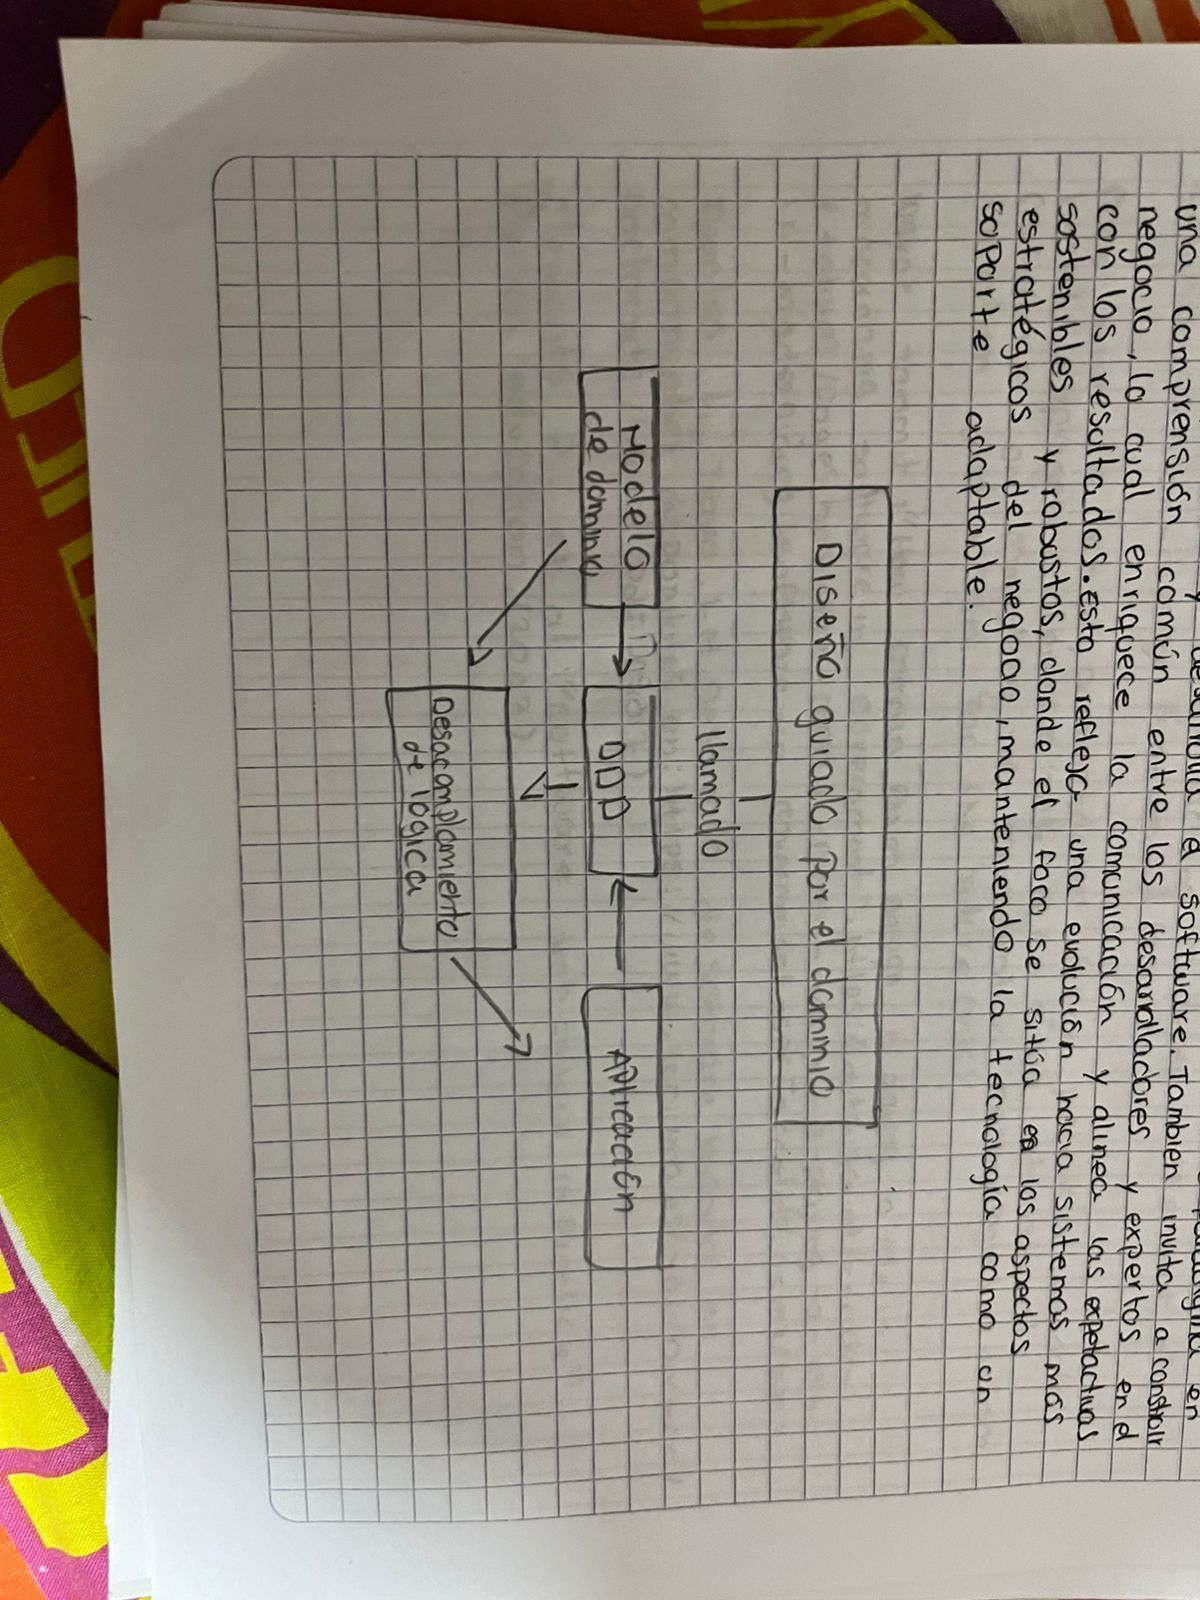 a software. Tambien invita a construir
una comprensión común entre los desarrolladores y expertos en el
negocio, lo cual enriquece la comunicación y alinea las expetactivas
con los resultados. esto refleja una evolución hacia sistemas más
sostenibles y robustos, donde el foco se sitúa en los aspectos
estratégicos del negocio, manteniendo la tecnología como un
soporte adaptable.
Diseño guiado por el dominio
llamado
Modelo
de dominio
DDD
Aplicación
Desacomplamiento
de lógica